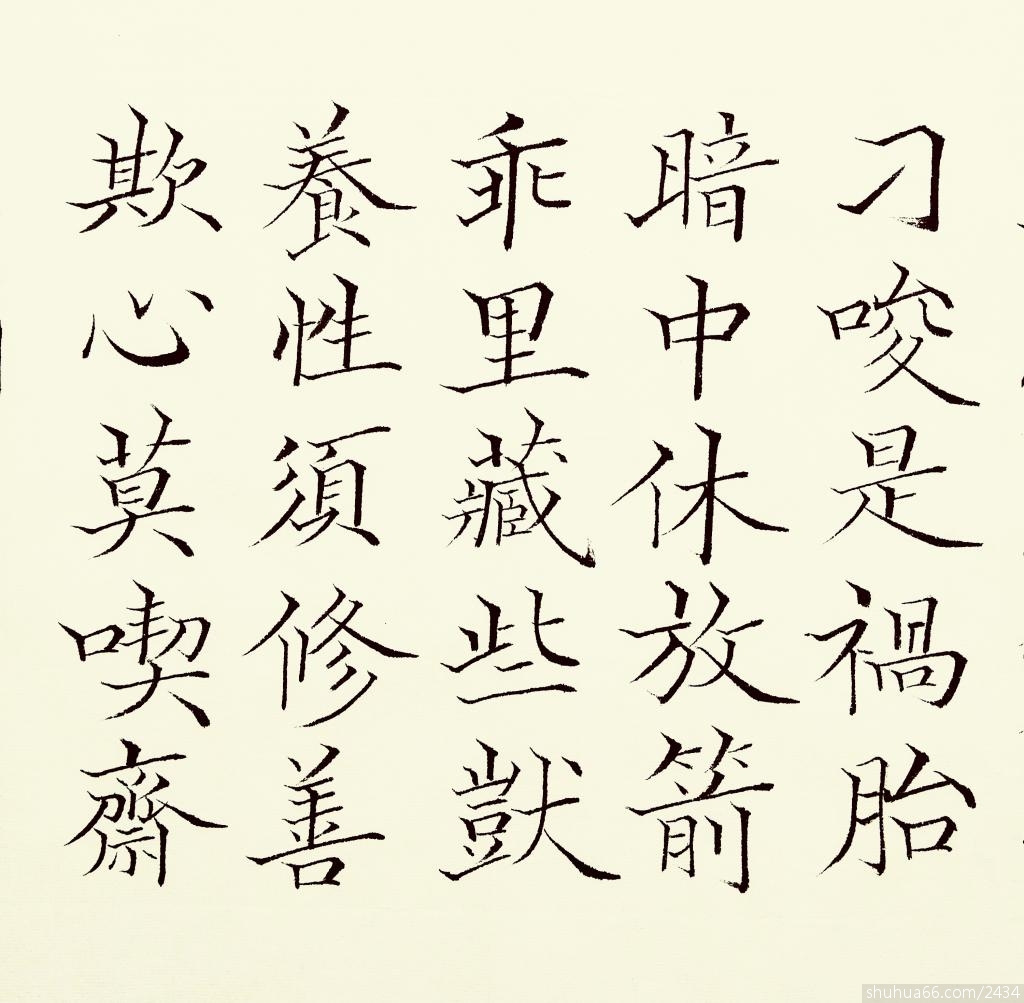 刁唆是禍胎
暗中休放箭
乖里藏些獃
養性須修善
欺心莫喫齋
shuhua66.com/2434